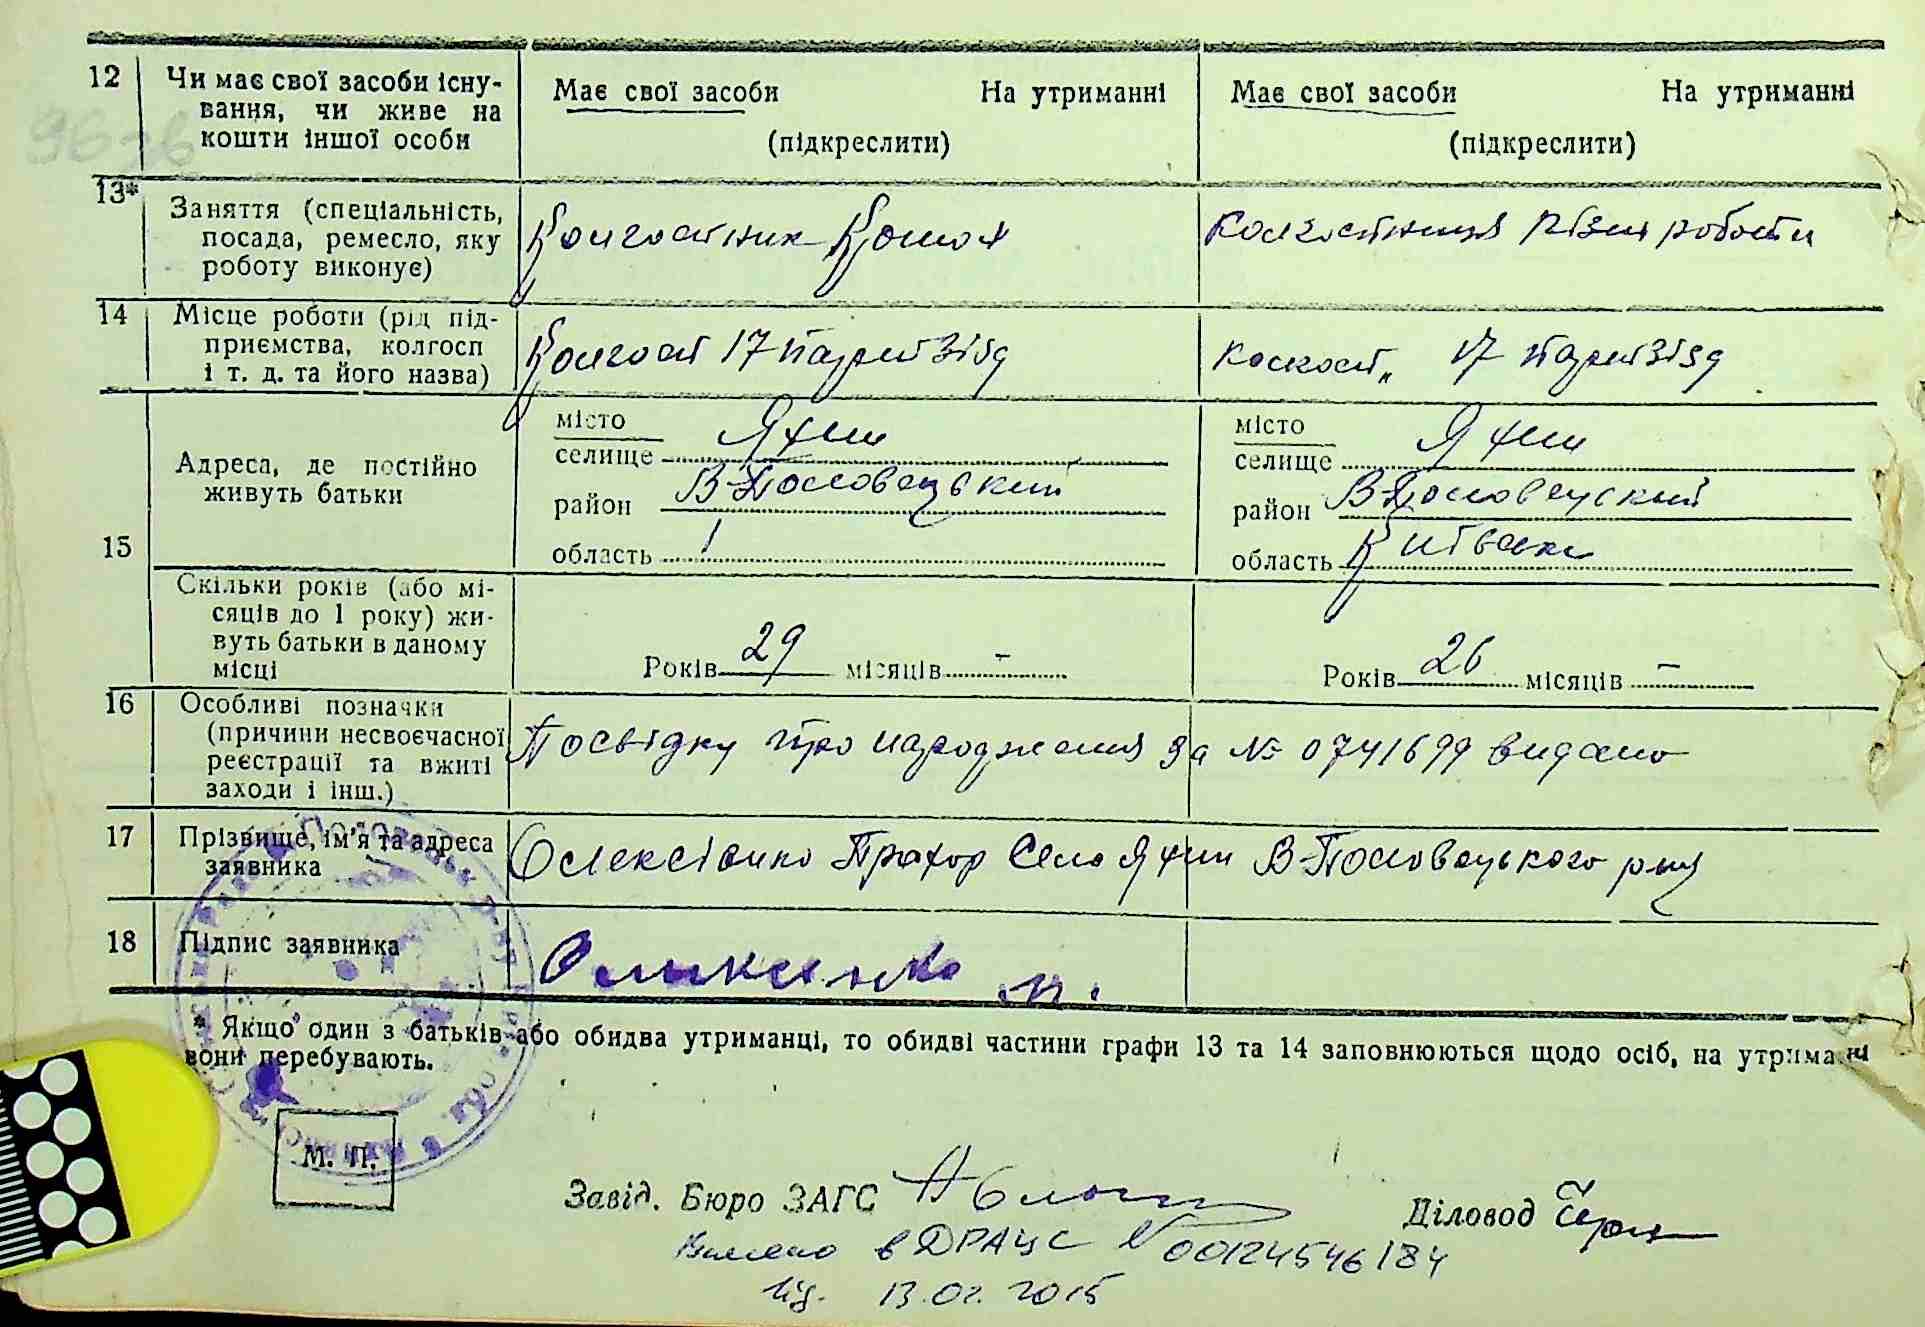 96 зв
12 Чи має свої засоби існу-
вання, чи живе на
кошти іншої особи
Має свої засоби На утриманні
(підкреслити)
Має свої засоби На утриманні
(підкреслити)
13* Заняття (спеціальність,
посада, ремесло, яку
роботу виконує)
Колгоспник
Колгоспниця різні роботи
14 Місце роботи (рід під-
приємства, колгосп
і т. д. та його назва)
Колгосп 17 партзізд
Колгосп „ 17 партзізд
15 Адреса, де постійно
живуть батьки
місто
селище Яхни
район В-Половецький
область
місто
селище Яхни
район В-Половецький
область Київська
Скільки років (або мі-
сяців до 1 року) жи-
вуть батьки в даному
місці
Років 29 місяців -
Років 26 місяців -
16 Особливі позначки
(причини несвоєчасної
реєстрації та вжиті
заходи і інш.)
Посвідку про народження за № 0741699 видано
17 Прізвище, ім'я та адреса
заявника
Олексієнко Прохор Село Яхни В-Половецького р-ну
18 Підпис заявника
* Якщо один з батьків або обидва утриманці, то обидві частини графи 13 та 14 заповнюються щодо осіб, на утриманні
вони перебувають.
М. П.
Завід. Бюро ЗАГС
Діловод
Внесено в ДРАЦС № 00124546184
від. 13.02.2015